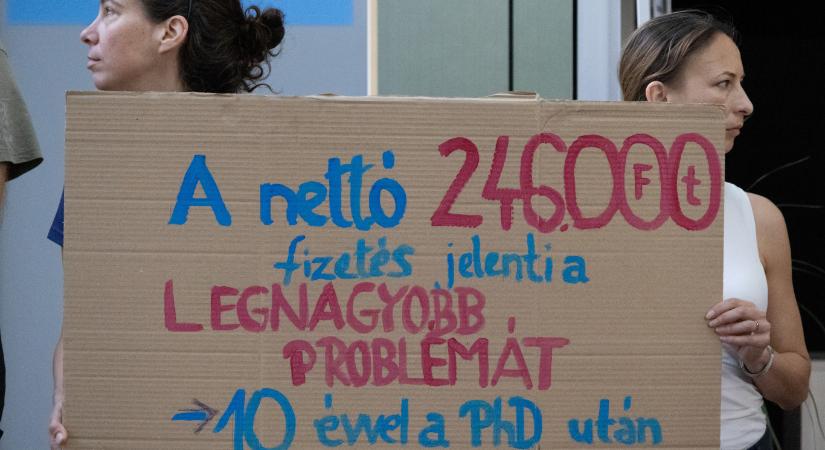 A nettó 246.000 Ft
fizetés jelenti a
LEGNAGYOBB
PROBLÉMÁT
→ 10 évvel a PhD után